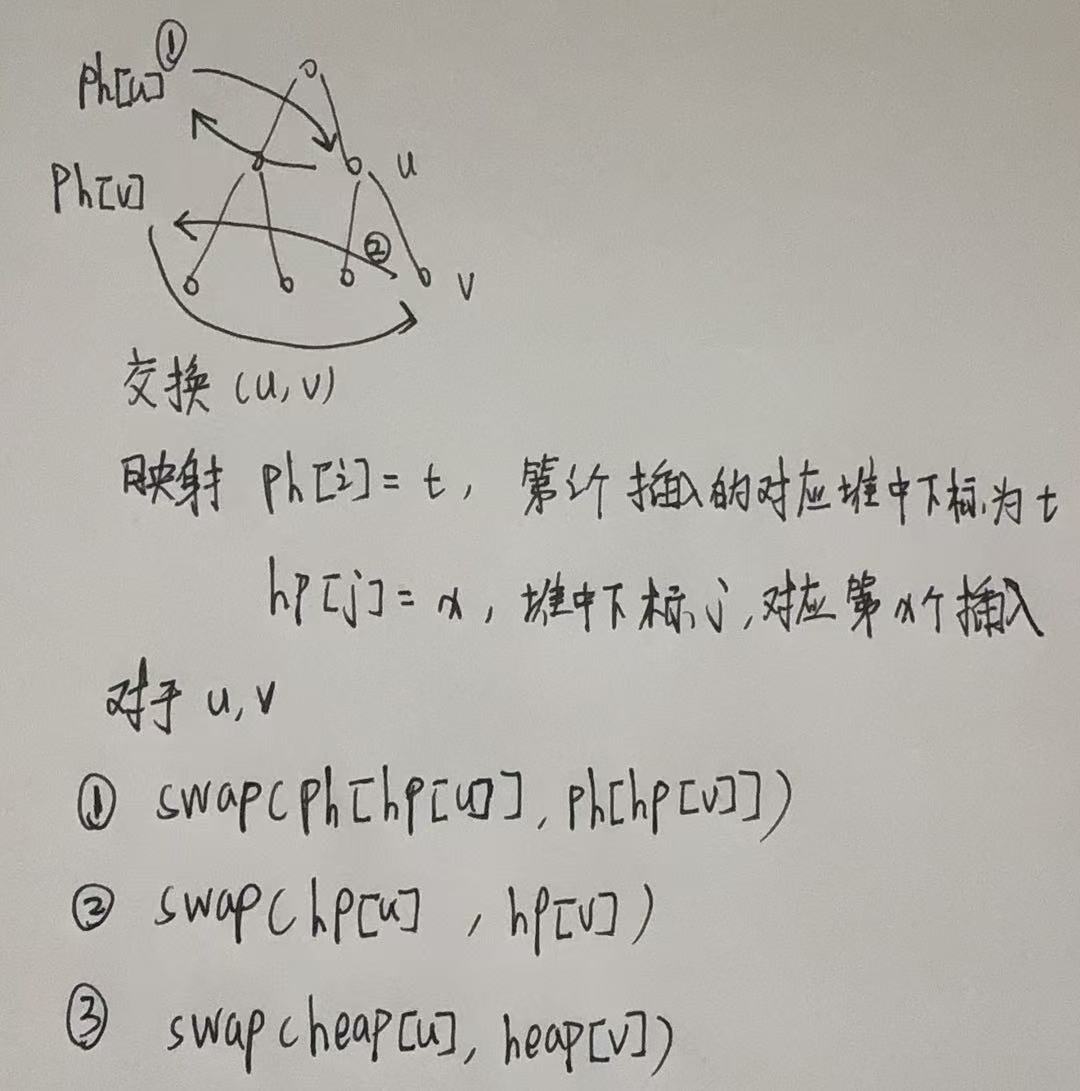 ph[u] ①
u
ph[v]
②
v
交换 (u, v)
映射 ph[i] = t, 第i个插入的对应堆中下标为t
hp[j] = x, 堆中下标j, 对应第x个插入
对于 u, v
① swap(ph[hp[u]], ph[hp[v]])
② swap(hp[u] , hp[v])
③ swap(heap[u], heap[v])